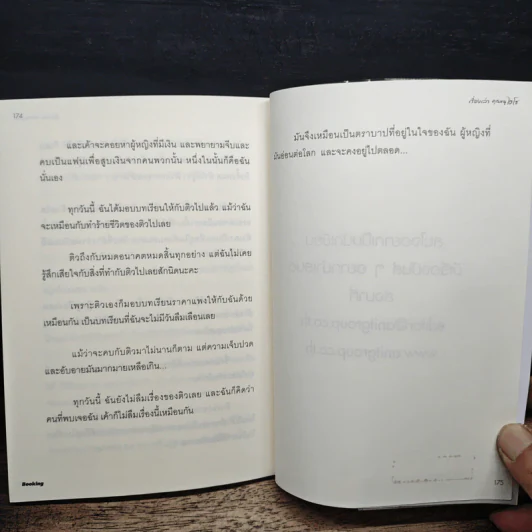 174
และเค้าจะคอยหาผู้หญิงที่มีเงิน และพยายามจีบและ
คบเป็นแฟนเพื่อสูบเงินจากคนพวกนั้น หนึ่งในนั้นก็คือฉัน
นั่นเอง
ทุกวันนี้ ฉันได้มอบบทเรียนให้กับติวไปแล้ว แม้ว่าฉัน
จะเหมือนกับทำร้ายชีวิตของติวไปเลย
ติวถึงกับหมดอนาคตหมดสิ้นทุกอย่าง แต่ฉันไม่เคย
รู้สึกเสียใจกับสิ่งที่ทำกับติวไปเลยสักนิดนะคะ
เพราะติวเองก็มอบบทเรียนราคาแพงให้กับฉันด้วย
เหมือนกัน เป็นบทเรียนที่ฉันจะไม่มีวันลืมเลือนเลย
แม้ว่าจะคบกับติวมาไม่นานก็ตาม แต่ความเจ็บปวด
และอับอายมันมากมายเหลือเกิน...
ทุกวันนี้ ฉันยังไม่ลืมเรื่องของติวเลย และฉันก็คิดว่า
คนที่พบเจอฉัน เค้าก็ไม่ลืมเรื่องนี้เหมือนกัน
Booking
มันจึงเหมือนเป็นตราบาปที่อยู่ในใจของฉัน ผู้หญิงที่
มันอ่อนต่อโลก และจะคงอยู่ไปตลอด...
175